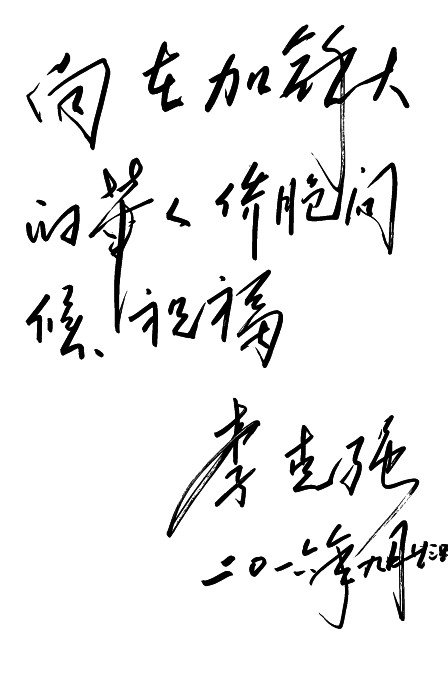 向在加拿大
的華人侨胞问
候、祝福
李克强
二〇一六年九月廿三日